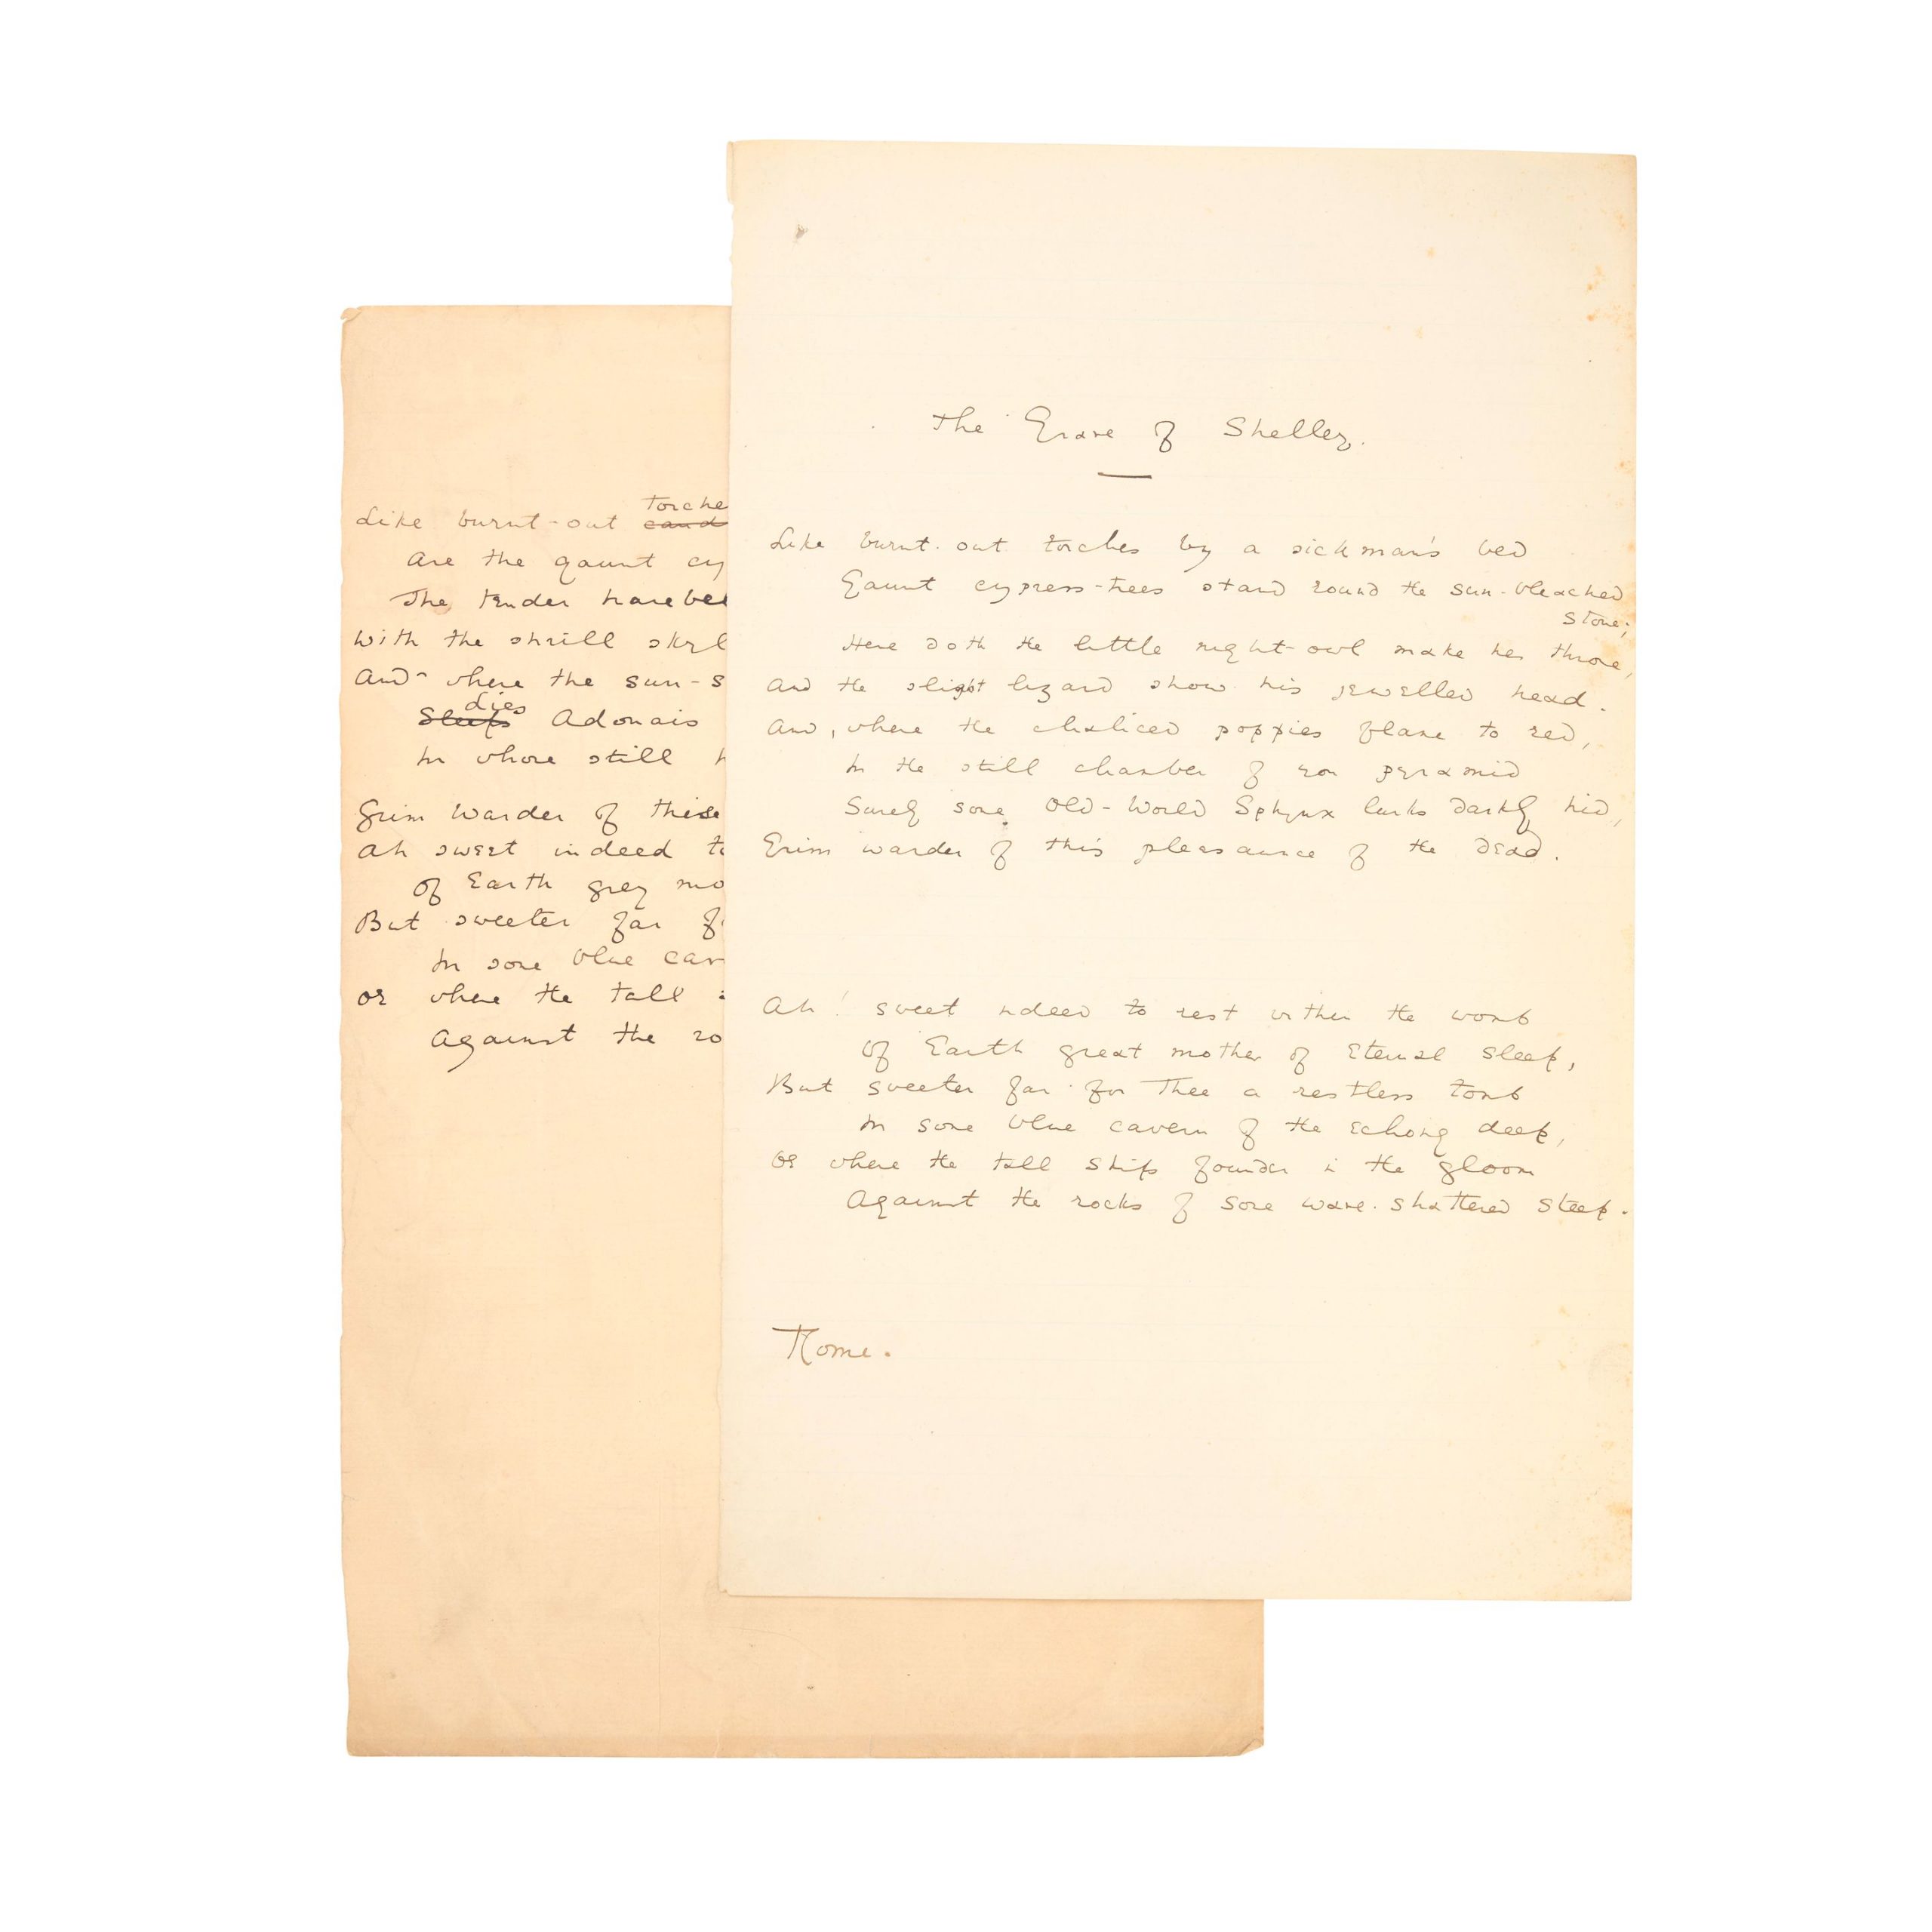 Like burnt-out torche
Are the gaunt cy
The tender harebel
With the shrill skyl
And where the sun-s
dies
Sleeps Adonais
In whose still
Grim warder of these
Ah sweet indeed to
Of Earth grey mo
But sweeter far
In some blue cav
Or where the tall
Against the ro
The Grave of Shelley.
Like burnt-out torches by a sick man's bed
Gaunt cypress-trees stand round the sun-bleached
stone;
Here doth the little night-owl make her throne,
And the slight lizard show his jewelled head.
And, where the chaliced poppies flame to red,
In the still chamber of yon pyramid
Surely some Old-World Sphynx lurks darkly hid,
Grim warder of this pleasaunce of the dead.
Ah! sweet indeed to rest within the womb
Of Earth great mother of Eternal sleep,
But sweeter far for Thee a restless tomb
In some blue cavern of the echoing deep,
Or where the tall ships founder in the gloom
Against the rocks of some wave-shattered steep.
Rome.